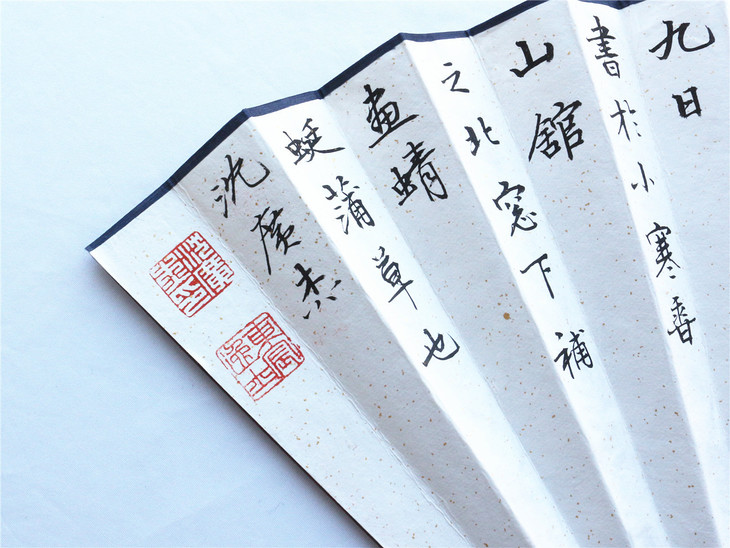 九日
書於小寒香
山館
之北窓下補
畫蜻
蜓蒲草也
沈廣杰
沈廣杰印